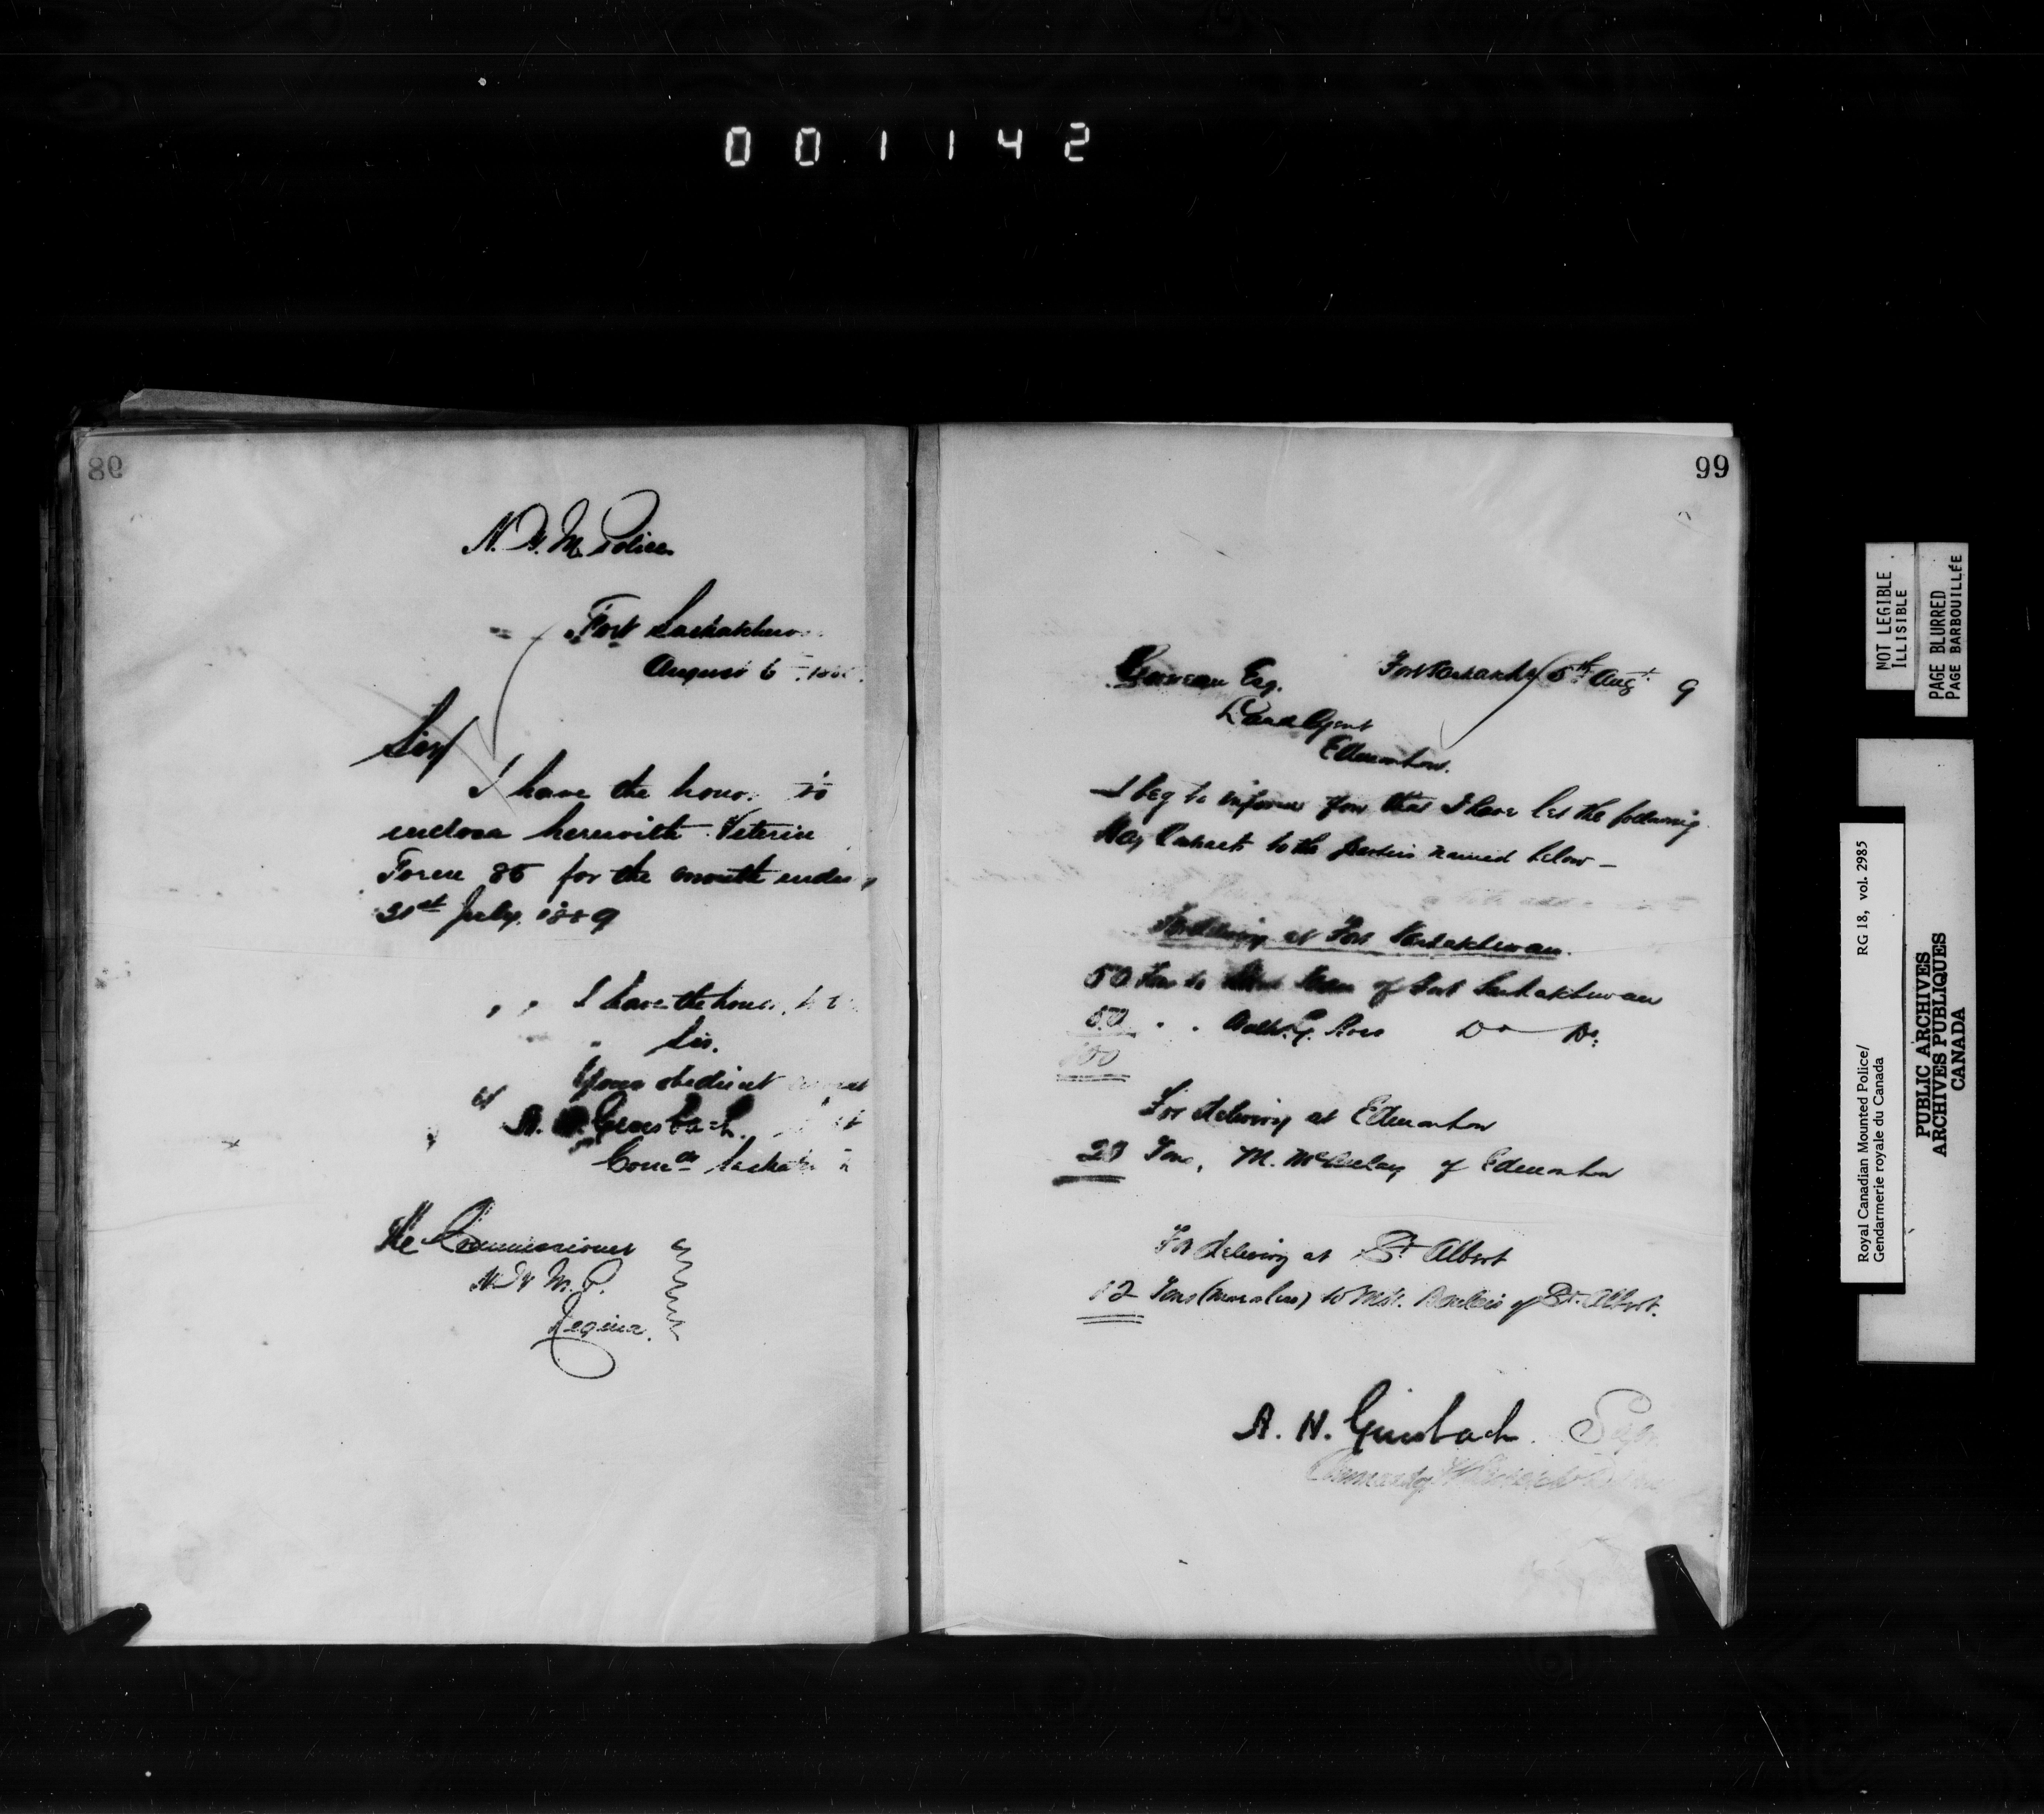 001142
98
N. W. M. Police
Fort Saskatchewan
August 6th 188
Sir
I have the honor to
enclose herewith Veterin
Form 86 for the month ended
31st July, 1889
I have the honor, to b
Sir,
Your obedient servant
A. H. Griesbach. Supt
Comdg Saskatn
The Commissioner
N W M. P.
Regina.
99
Esq. Fort Saskatche 6th Augt 9
Land Agent
Edmonton.
I beg to inform you that I have let the following
Hay Contracts to the parties named below —
For delivery at Fort Saskatchewan.
50 Tons to of Fort Saskatchewan
50 " " G. Ross Do Do
100
For delivery at Edmonton
Tons, M. McCauley of Edmonton
For delivery at St Albert
12 Tons (more or less) to of St. Albert.
A. H. Griesbach. Supt
Commandg
NOT LEGIBLE
ILLISIBLE
PAGE BLURRED
PAGE BARBOUILLÉE
Royal Canadian Mounted Police/ RG 18, vol. 2985
Gendarmerie royale du Canada
PUBLIC ARCHIVES
ARCHIVES PUBLIQUES
CANADA